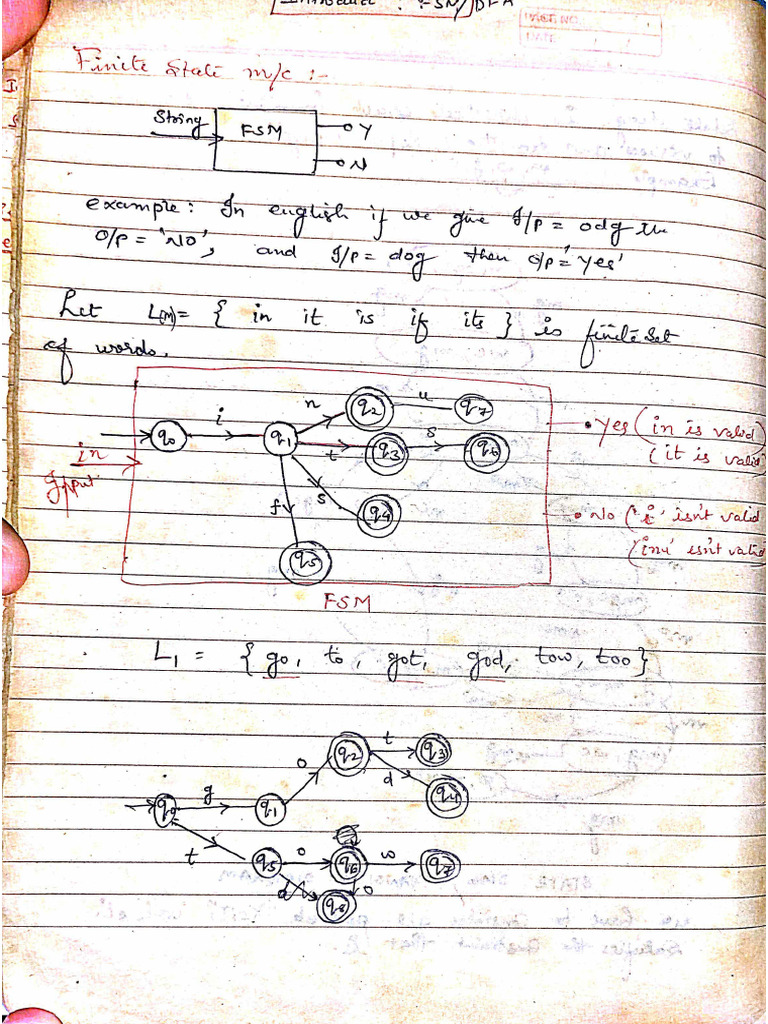 FSM/DFA
PAGE NO.
DATE
Finite State m/c :-
String
FSM
Y
N
example: In english if we give I/p = odg the
O/p = 'NO', and I/p = dog then o/p = 'Yes'
Let L(m) = { in it is if its } is finite set
of words.
n
q2
u
q7
i
q0
q1
t
q3
s
q6
• Yes (in is valid)
(it is valid)
in
Input
f
s
q4
• No ('i' isn't valid
(inu' isn't valid
q5
FSM
L1 = { go, to, got, god, tow, too }
o
q2
t
q3
g
d
q4
q0
q1
t
q5
o
q6
w
q7
o
q8